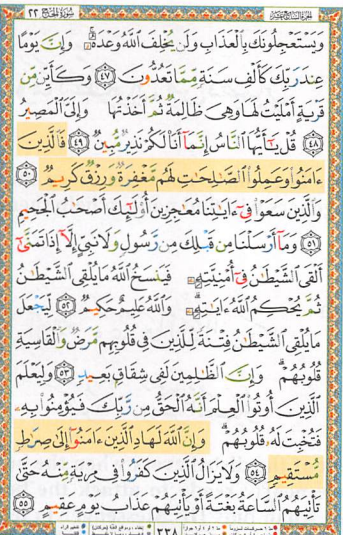 الجزء السابع عشر سورة الحج ٢٢
وَيَسْتَعْجِلُونَكَ بِٱلْعَذَابِ وَلَن يُخْلِفَ ٱللَّهُ وَعْدَهُۥۚ وَإِنَّ يَوْمًا
عِندَ رَبِّكَ كَأَلْفِ سَنَةٖ مِّمَّا تَعُدُّونَ ٤٧ وَكَأَيِّن مِّن
قَرْيَةٍ أَمْلَيْتُ لَهَا وَهِيَ ظَالِمَةٞ ثُمَّ أَخَذْتُهَا وَإِلَيَّ ٱلْمَصِيرُ
٤٨ قُلْ يَٰٓأَيُّهَا ٱلنَّاسُ إِنَّمَآ أَنَا۠ لَكُمْ نَذِيرٞ مُّبِينٞ ٤٩ فَٱلَّذِينَ
ءَامَنُوا۟ وَعَمِلُوا۟ ٱلصَّٰلِحَٰتِ لَهُم مَّغْفِرَةٞ وَرِزْقٞ كَرِيمٞ ٥٠
وَٱلَّذِينَ سَعَوْا۟ فِيٓ ءَايَٰتِنَا مُعَٰجِزِينَ أُو۟لَٰٓئِكَ أَصْحَٰبُ ٱلْجَحِيمِ
٥١ وَمَآ أَرْسَلْنَا مِن قَبْلِكَ مِن رَّسُولٖ وَلَا نَبِيٍّ إِلَّآ إِذَا تَمَنَّىٰٓ
أَلْقَى ٱلشَّيْطَٰنُ فِيٓ أُمْنِيَّتِهِۦ فَيَنسَخُ ٱللَّهُ مَا يُلْقِي ٱلشَّيْطَٰنُ
ثُمَّ يُحْكِمُ ٱللَّهُ ءَايَٰتِهِۦۗ وَٱللَّهُ عَلِيمٌ حَكِيمٞ ٥٢ لِّيَجْعَلَ
مَا يُلْقِي ٱلشَّيْطَٰنُ فِتْنَةٗ لِّلَّذِينَ فِي قُلُوبِهِم مَّرَضٞ وَٱلْقَاسِيَةِ
قُلُوبُهُمْۗ وَإِنَّ ٱلظَّٰلِمِينَ لَفِي شِقَاقِۭ بَعِيدٖ ٥٣ وَلِيَعْلَمَ
ٱلَّذِينَ أُوتُوا۟ ٱلْعِلْمَ أَنَّهُ ٱلْحَقُّ مِن رَّبِّكَ فَيُؤْمِنُوا۟ بِهِۦ
فَتُخْبِتَ لَهُۥ قُلُوبُهُمْۗ وَإِنَّ ٱللَّهَ لَهَادِ ٱلَّذِينَ ءَامَنُوٓا۟ إِلَىٰ صِرَٰطٖ
مُّسْتَقِيمٖ ٥٤ وَلَا يَزَالُ ٱلَّذِينَ كَفَرُوا۟ فِي مِرْيَةٖ مِّنْهُ حَتَّىٰ
تَأْتِيَهُمُ ٱلسَّاعَةُ بَغْتَةً أَوْ يَأْتِيَهُمْ عَذَابُ يَوْمٍ عَقِيمٍ ٥٥
٣٣٨